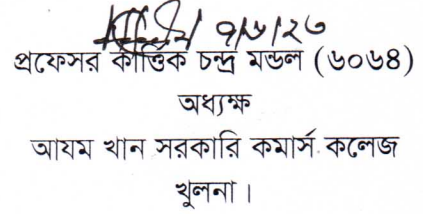 ৭/৬/২৩
প্রফেসর কার্ত্তিক চন্দ্র মন্ডল (৬০৬৪)
অধ্যক্ষ
আযম খান সরকারি কমার্স কলেজ
খুলনা।